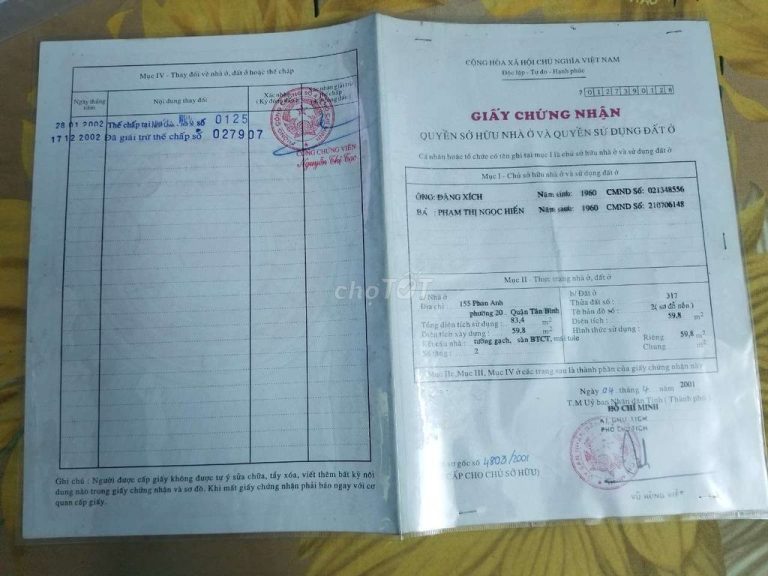 Mục IV - Thay đổi về nhà ở, đất ở hoặc thế chấp
Ngày tháng năm
Nội dung thay đổi
Xác nhận
28 01 2002 Thế chấp tại số 0125
17 12 2002 Đã giải trừ thế chấp số 027907
CÔNG CHỨNG VIÊN
Nguyễn Thị Tạc
Ghi chú : Người được cấp giấy không được tự ý sửa chữa, tẩy xóa, viết thêm bất kỳ nội
dung nào trong giấy chứng nhận và sơ đồ. Khi mất giấy chứng nhận phải báo ngay với cơ
quan cấp giấy.
CỘNG HÒA XÃ HỘI CHỦ NGHĨA VIỆT NAM
Độc lập - Tự do - Hạnh phúc
GIẤY CHỨNG NHẬN
QUYỀN SỞ HỮU NHÀ Ở VÀ QUYỀN SỬ DỤNG ĐẤT Ở
Cá nhân hoặc tổ chức có tên ghi tại mục I là chủ sở hữu nhà ở và sử dụng đất ở
Mục I - Chủ sở hữu nhà ở và sử dụng đất ở
ÔNG: ĐẶNG XÍCH Năm sinh: 1960 CMND Số: 021348556
BÀ : PHẠM THỊ NGỌC HIỀN Năm sinh: 1960 CMND Số: 210706148
Mục II - Thực trạng nhà ở, đất ở
a/ Nhà ở
Địa chỉ : 155 Phan Anh
phường 20 . Quận Tân Bình
Tổng diện tích sử dụng : 83,4 m2
Diện tích xây dựng : 59,8 m2
Kết cấu nhà : tường gạch, sàn BTCT, mái tole
Số tầng : 2
b/ Đất ở
Thửa đất số : 317
Tờ bản đồ số : 2( sơ đồ nền )
Diện tích : 59,8 m2
Hình thức sử dụng :
Riêng: 59,8 m2
Chung m2
Mục II, Mục III, Mục IV ở các trang sau là thành phần của giấy chứng nhận này
Ngày 04 tháng 4 2001
T.M Uỷ ban Nhân dân Tỉnh ( Thành phố )
HỒ CHÍ MINH
PHÓ CHỦ TỊCH
gốc số 4803/2001
(CẤP CHO CHỦ SỞ HỮU)
VŨ HÙNG VIỆT
chợTỐT